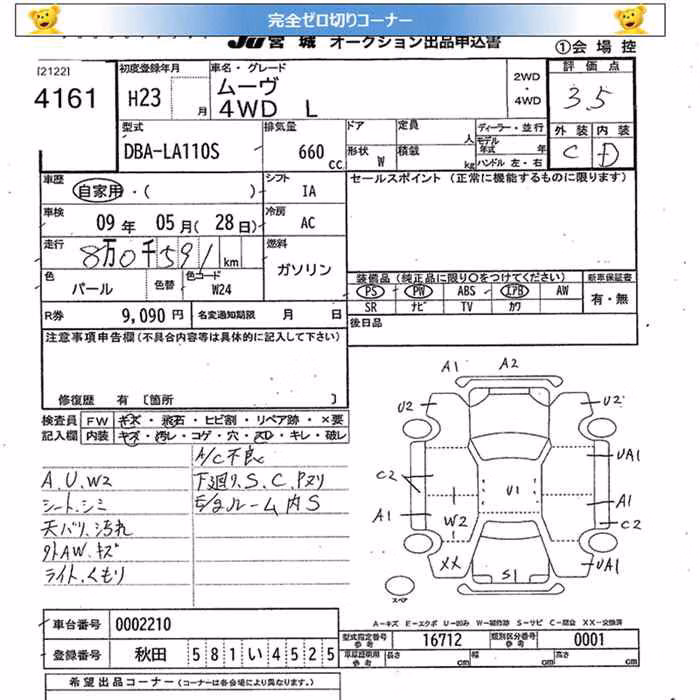 完全ゼロ切りコーナー
JU宮城 オークション出品申込書
①会場控
[2122]
4161
初度登録年月
H23
月
車名・グレード
ムーヴ
4WD L
2WD
・
4WD
評価点
3.5
外装 内装
C D
型式
DBA-LA110S
排気量
660
cc
ドア
定員
人
形状
W
積載
kg
ディーラー・並行
モデル
年式 年
ハンドル 左・右
車歴
自家用・( )
シフト
IA
セールスポイント (正常に機能するものに限ります)
車検
09年 05月(28日)
冷房
AC
走行
8万0千591km
燃料
ガソリン
色
パール
色替
色コード
W24
装備品(純正品に限り○をつけてください)
新車保証書
PS PW ABS エアB AW
SR ナビ TV カワ
有・無
R券
9,090円
名変通知期限 月 日
後日品
注意事項申告欄(不具合内容等は具体的に記入して下さい)
修復歴 有 [箇所 ]
検査員
記入欄
FW キズ・飛石・ヒビ割・リペア跡・×要
内装 キズ・汚レ・コゲ・穴・スレ・キレ・破レ
A/C不良
A.U.W2
下廻り.S.C.Pヌリ
シート.シミ
E/gルーム内S
天バリ.汚れ
外AW.キズ
ライト.くもり
A1 A2
U2 U2
UA1
C2
U1
A1
A1
W2
C2
XX
S1
UA1
スペア
A-キズ E-エクボ U-凹み W-補修跡 S-サビ C-腐食 XX-交換済
車台番号
0002210
登録番号
秋田 581い4525
型式指定番号
参考
16712
類別区分番号
参考
0001
参考
長さ cm
幅 cm
高さ cm
希望出品コーナー (コーナーは各会場により異なります。)